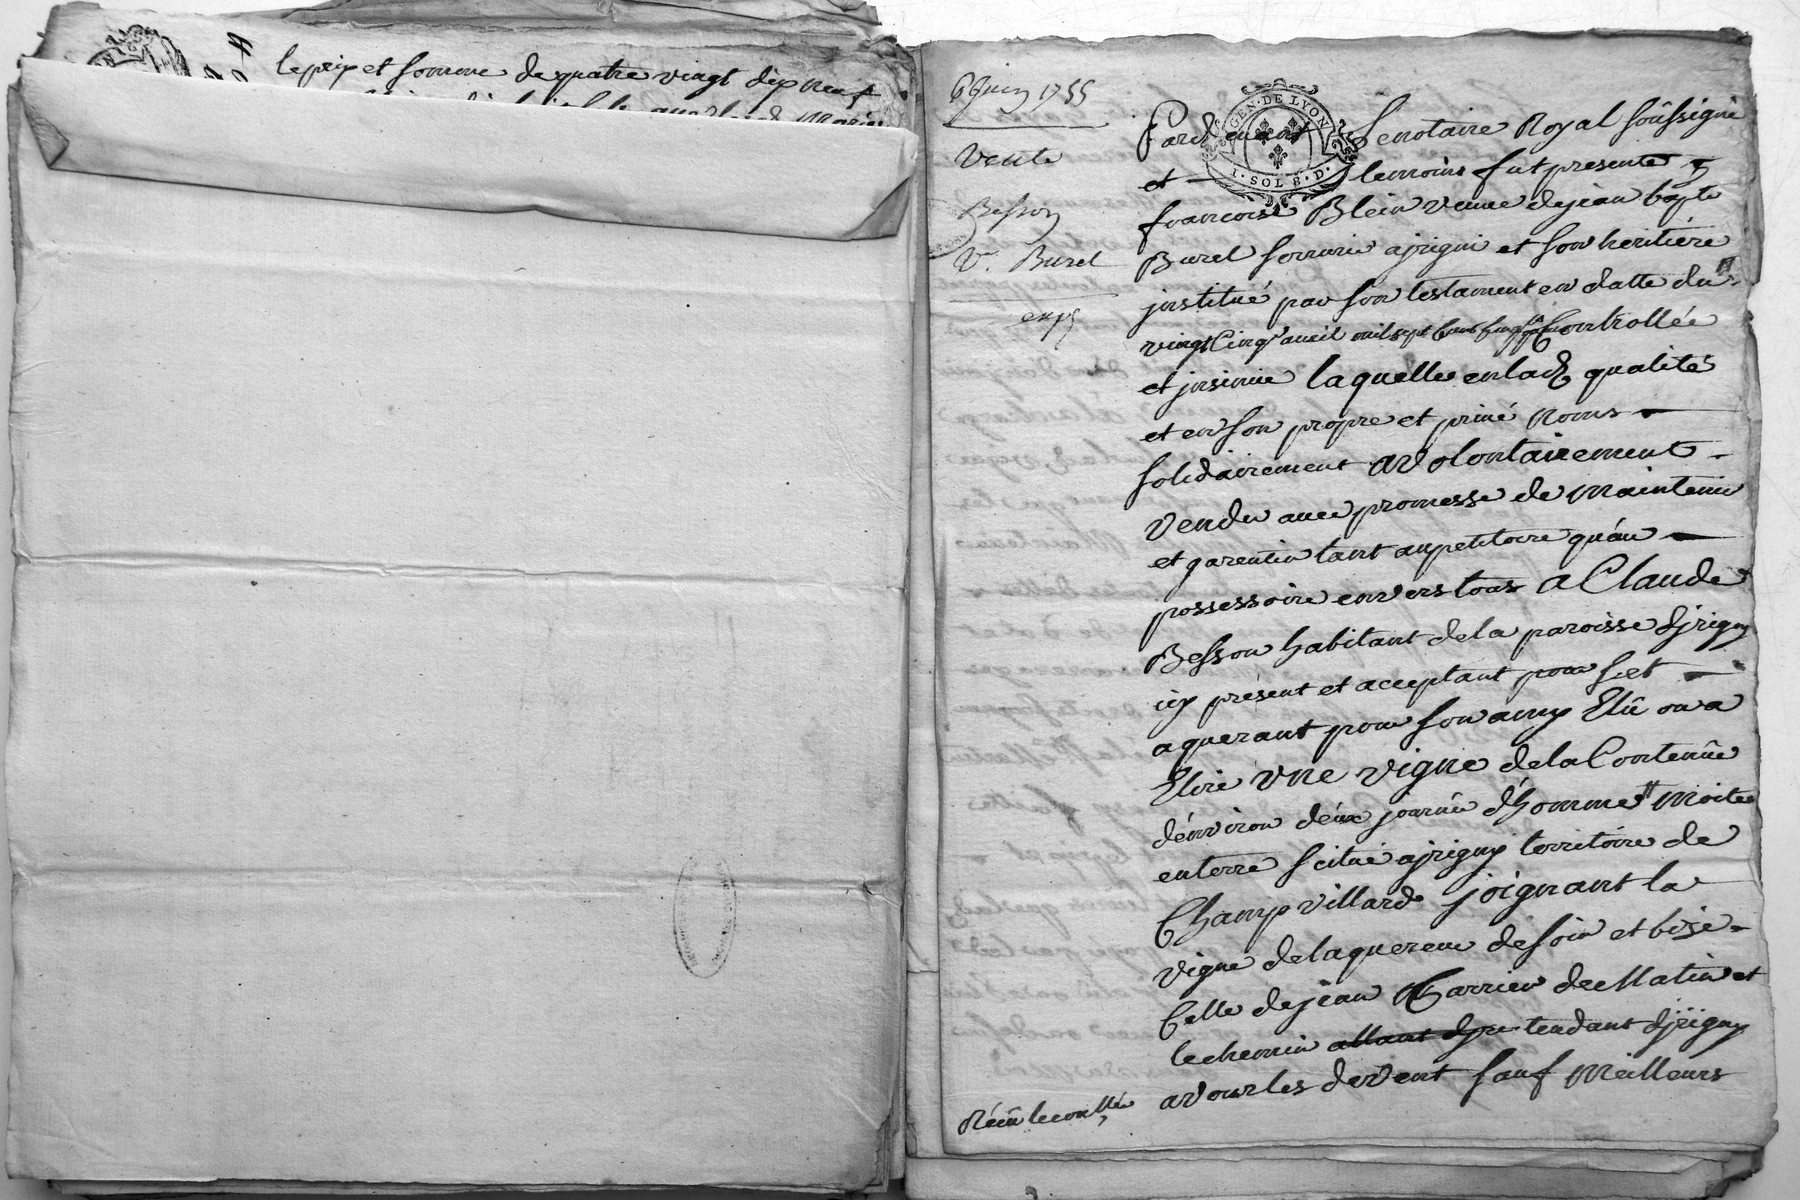 le prix et somme de quatre vingt dix neuf
6 Juin 1755
Vente
Besson
V. Burel
exp
GEN · DE LYON
1 · SOL 8 · D ·
Pardevant Le notaire Royal soûssigné
et temoins fut presente
francoise Blein veuve de jean bapte
Burel serrurie a jrigni et son heritiére
jnstitué par son testament en datte du
vingt Cinq avril mil sept Cent Controllée
et jnsinué laquelle en lad qualité
et en son propre et privé noms
solidairement a volontairement
vendu avec promesse de maintenir
et garentir tant au petitoire qu'au
possessoire envers tous a Claude
Besson habitant de la paroisse d'jrigny
icy présent et acceptant pour s et
aquerant pour son amy Elû ou a
Elire vne vigne de la Contenüe
d'énviron déux journée d'homme moite
en terre scitué a jrigny territoire de
Champvillard joignant la
vigne de laquereur de soir et bize
Celle de jean Carrier de Matin et
le chemin allant d tendant d'jrigny
a vourles de vent sauf meilleurs